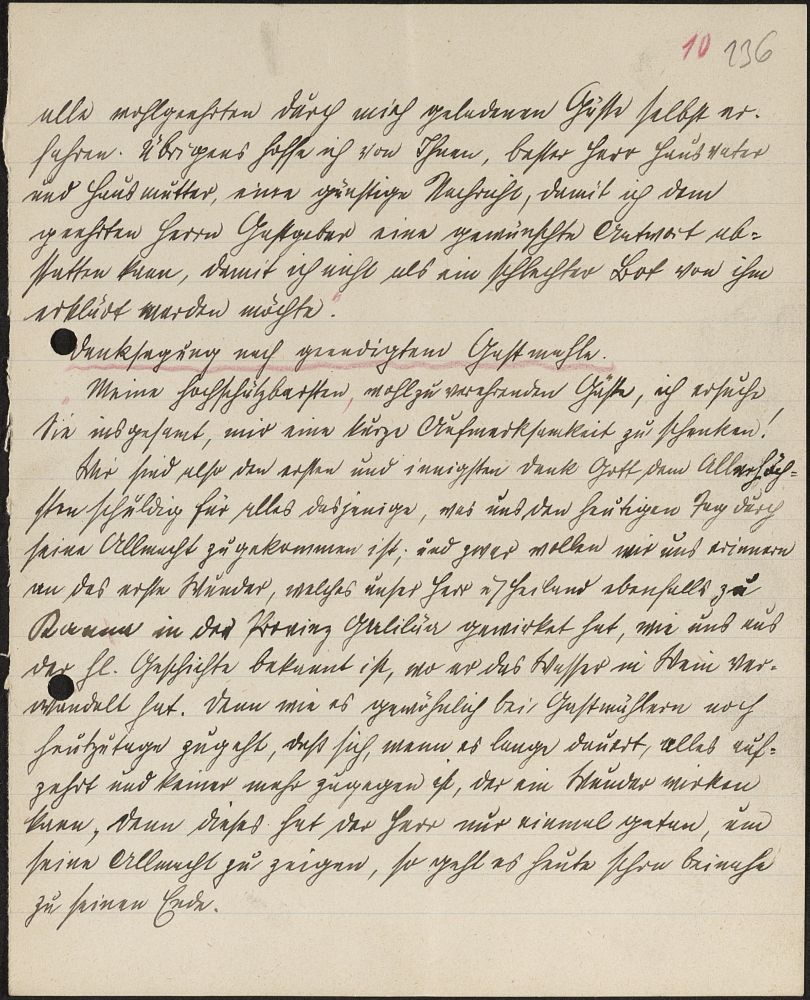 10 136
alle wohlgeehrten durch mich geladenen Gäste selbst er-
fahren. Übrigens hoffe ich von Ihnen, bester Herr Hausvater
und Hausmutter, eine günstige Nachricht, damit ich dem
geehrten Herrn Gastgeber eine gewünschte Antwort ab-
statten kann, damit ich nicht als ein schlechter Bot von ihm
erklärt werden möchte."
Danksagung nach geendigtem Gastmahle.
"Meine hochschätzbarsten, wohlzuverehrenden Gäste, ich ersuche
Sie insgesamt, mir eine kurze Aufmerksamkeit zu schenken!
Wir sind also den ersten und innigsten Dank Gott dem Allerhöch-
sten schuldig für alles dasjenige, was uns den heutigen Tag durch
seine Allmacht zugekommen ist; und zwar wollen wir uns erinnern
an das erste Wunder, welches unser Herr u. Heiland ebenfalls zu
Kanna in der Provinz Galiläa gewirket hat, wie uns aus
der hl. Geschichte bekannt ist, wo er das Wasser in Wein ver-
wandelt hat. Denn wie es gewöhnlich bei Gastmählern noch
heutzutage zugeht, daß sich, wenn es lange dauert, alles auf-
zehrt und keiner mehr zugegen ist, der ein Wunder wirken
kann, denn dieses hat der Herr nur einmal getan, um
seine Allmacht zu zeigen, so geht es heute schon beinahe
zu seinen Ende.